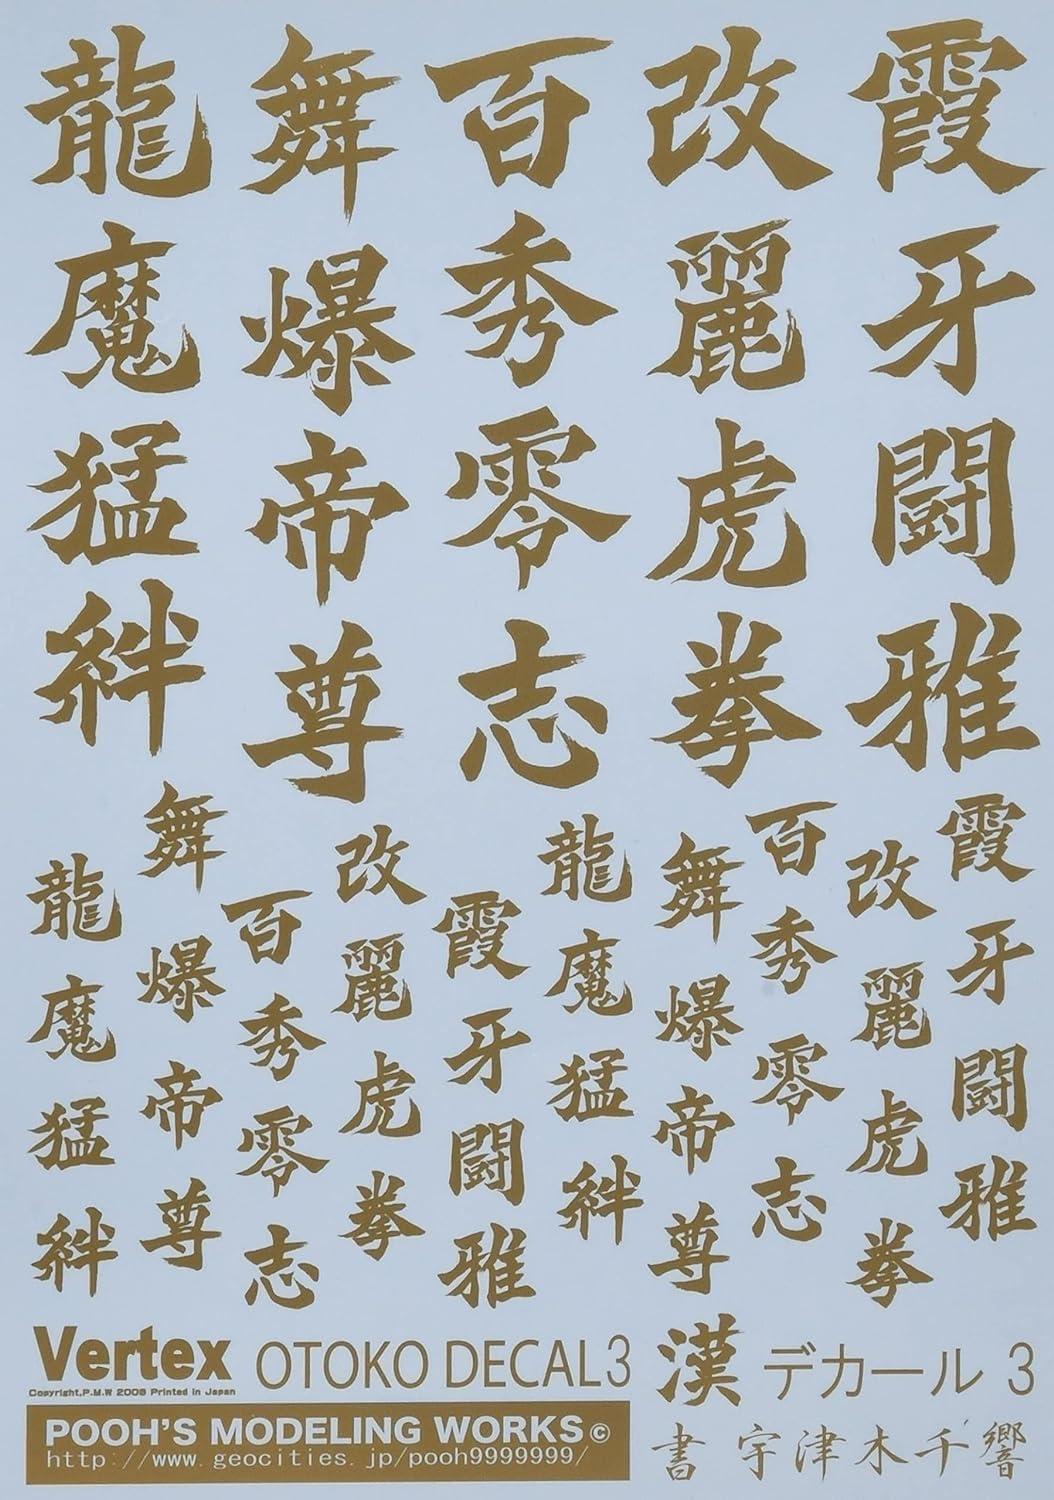 龍 舞 百 改 霞
魔 爆 秀 麗 牙
猛 帝 零 虎 闘
絆 尊 志 拳 雅
龍 舞 百 改 霞 龍 舞 百 改 霞
魔 爆 秀 麗 牙 魔 爆 秀 麗 牙
猛 帝 零 虎 闘 猛 帝 零 虎 闘
絆 尊 志 拳 雅 絆 尊 志 拳 雅
Vertex OTOKO DECAL3 漢 デカール 3
Copyright,P.M.W 2006 Printed in Japan
POOH'S MODELING WORKS©
http://www.geocities.jp/pooh9999999/
書 宇津木千響